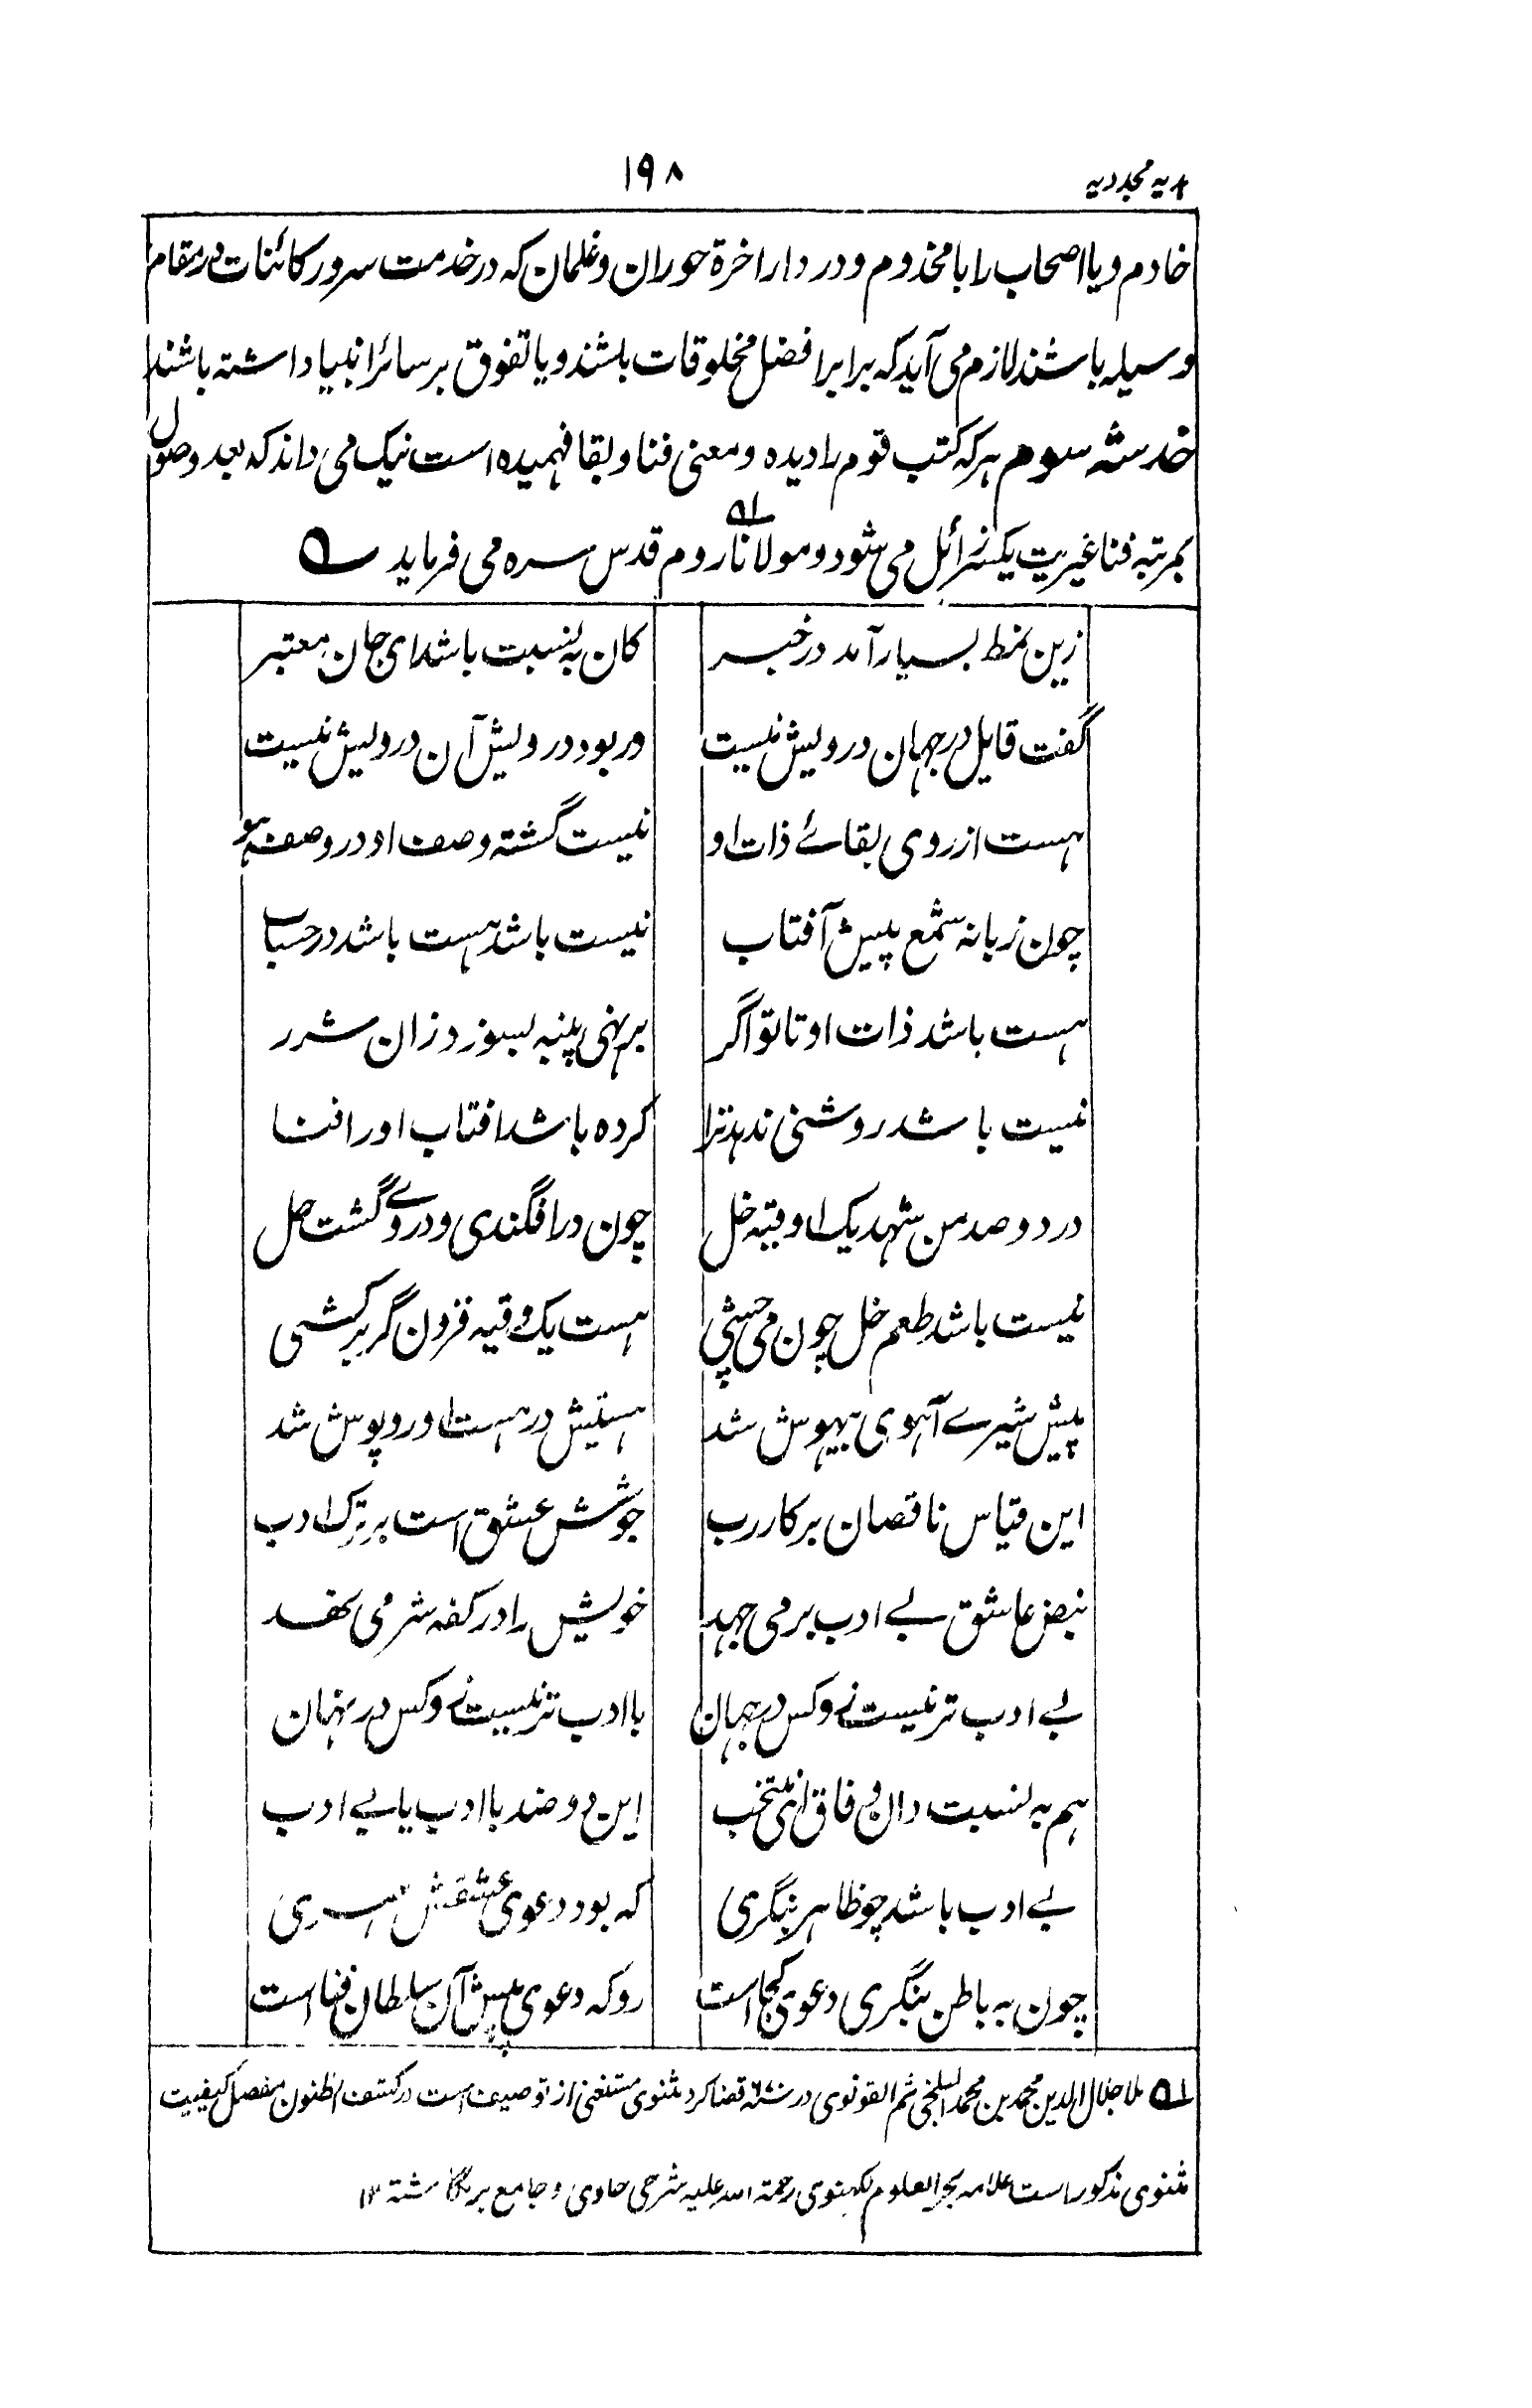 ہدیہ مجددیہ
۱۹۸
خادم ویا اصحاب را با مخدوم و در دار اخرة حوران و غلمان که در خدمت سرور کائنات در مقام
وسیله باشند لازم می آید که برابر افضل مخلوقات باشند و یا تفوق بر سائر انبیا داشته باشند
خدشه سوم هر که کتب قوم را دیده و معنی فنا و بقا فهمیده است نیک می داند که بعد وصول
بمرتبه فنا غیریت یکسر زائل می شود و مولانا روم قدس سره می فرماید
زین نمط بسیار آمد در خبر
کان به نسبت باشد ای جان معتبر
گفت قایل در جهان درویش نیست
ور بود درویش آن درویش نیست
هست از روی بقائے ذات او
نیست گشته وصف او در وصف هو
چون زبانه شمع پیش آفتاب
نیست باشد هست باشد در حساب
هست باشد ذات او تا تو اگر
بر نهی پنبه بسوزد زان شرر
نیست باشد روشنی ندهد ترا
کرده باشد افتاب او را فنا
در دو صد من شهد یک اوقیه خل
چون در افگندی و در وے گشت حل
نیست باشد طعم خل چون می چشی
هست یک وقیه فزون گر بر کشی
پیش شیرے آهوی بیهوش شد
هستیش در هست او روپوش شد
این قیاس ناقصان بر کار رب
جوشش عشق است نه ترک ادب
نبض عاشق بے ادب بر می جهد
خویش را در کفه شه می نهد
بے ادب تر نیست زو کس در جهان
با ادب تر نیست زو کس در نهان
هم به نسبت دان وفاق ای منتخب
این دو ضد با ادب یا بے ادب
بے ادب باشد چو ظاهر بنگری
که بود دعوی عشقش همسری
چون به باطن بنگری دعوی کجا است
رو که دعوی پیش آن سلطان فنا است
ملا جلال الدین محمد بن محمد البلخی ثم القونوی در سنه قضا کرد مثنوی مستغنی از توصیف است در کشف الظنون مفصل کیفیت
مثنوی مذکور است علامه بحر العلوم لکهنوی رحمة الله علیه شرحی حاوی و جامع بر نگاشته ۱۲